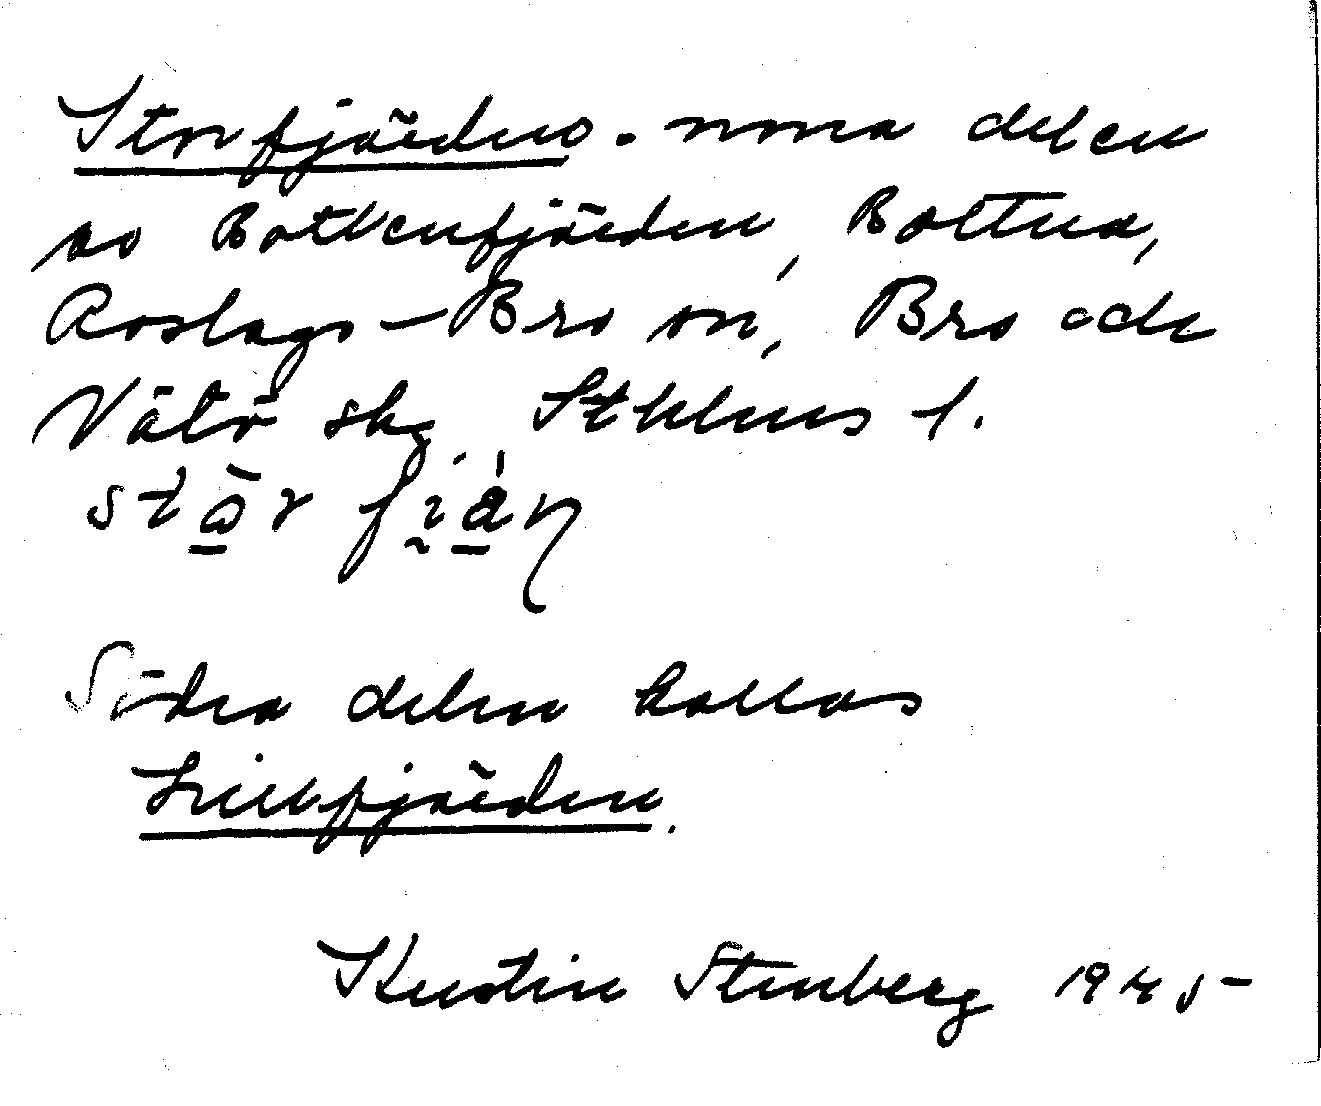 Storfjärden. norra delen
av Bottenfjärden, Boltna,
Roslags-Bro sn, Bro och
Vätö skg Sthlms l.

Södra delen kallas
Lillfjärden.
Kerstin Stenberg 1945